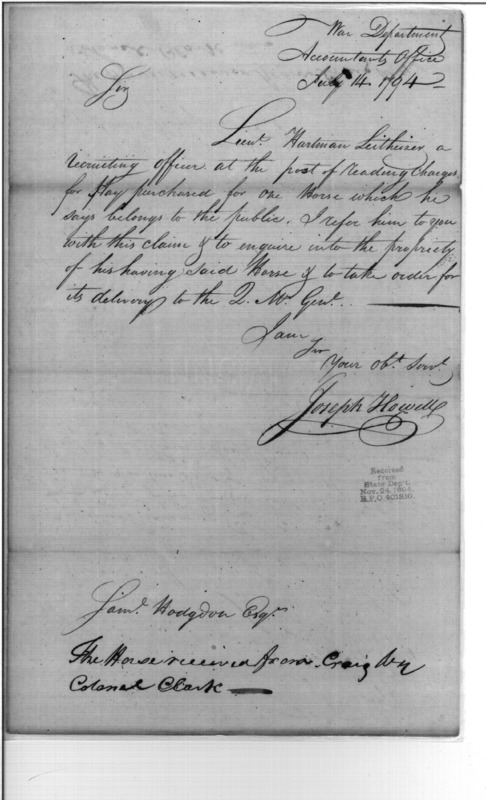 War Department
Accountants Office
July 14. 1794
Sir
Lieut. Hartman Leitheizer a
recruiting officer at the post of reading Charges
for Hay purchased for one Horse which he
says belongs to the public. I refer him to you
with this claim & to enquire into the propriety
of his having said Horse & to take order for
its delivery to the Q. Mr. Genl.
I am
Sir
Your obt. Servt.
Joseph Howell
Received
from
State Dep't.
Nov. 24, 1894.
R.P.O. 401810.
Saml. Hodgdon Esqr.
The Horse received from Craig by
Colonal Clark